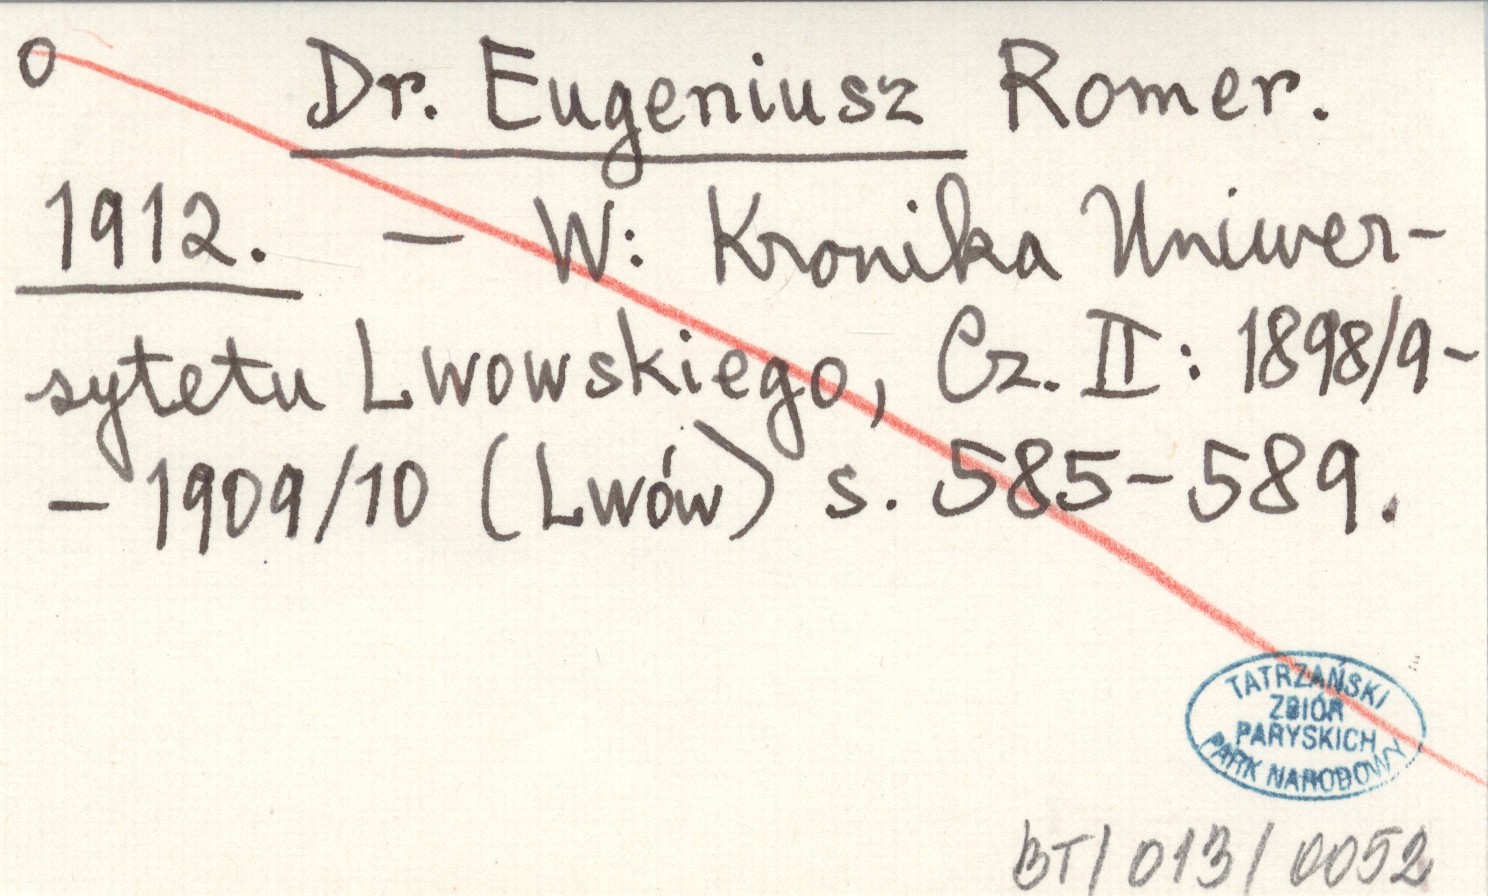 o Dr. Eugeniusz Romer.
1912. — W: Kronika Uniwer-
sytetu Lwowskiego, Cz. II: 1898/9-
- 1909/10 (Lwów) s. 585-589.
TATRZAŃSKI
ZBIÓR
PARYSKICH
PARK NARODOWY
BT/013/0052